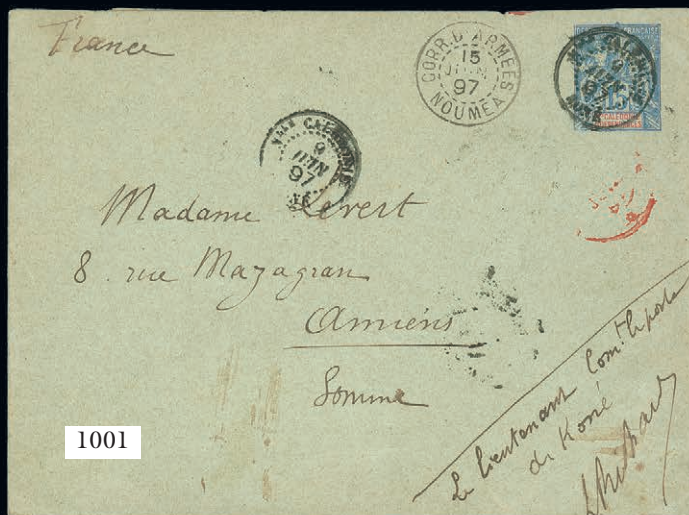 France
CORR. D'ARMEES
15
JUIN
97
NOUMEA
9
JUIN
97
15
Nlle CALEDONIE
9
JUIN
97
Madame Levert
8. rue Mazagran
Amiens
Somme
Le lieutenant Comt le poste
de Koné
1001